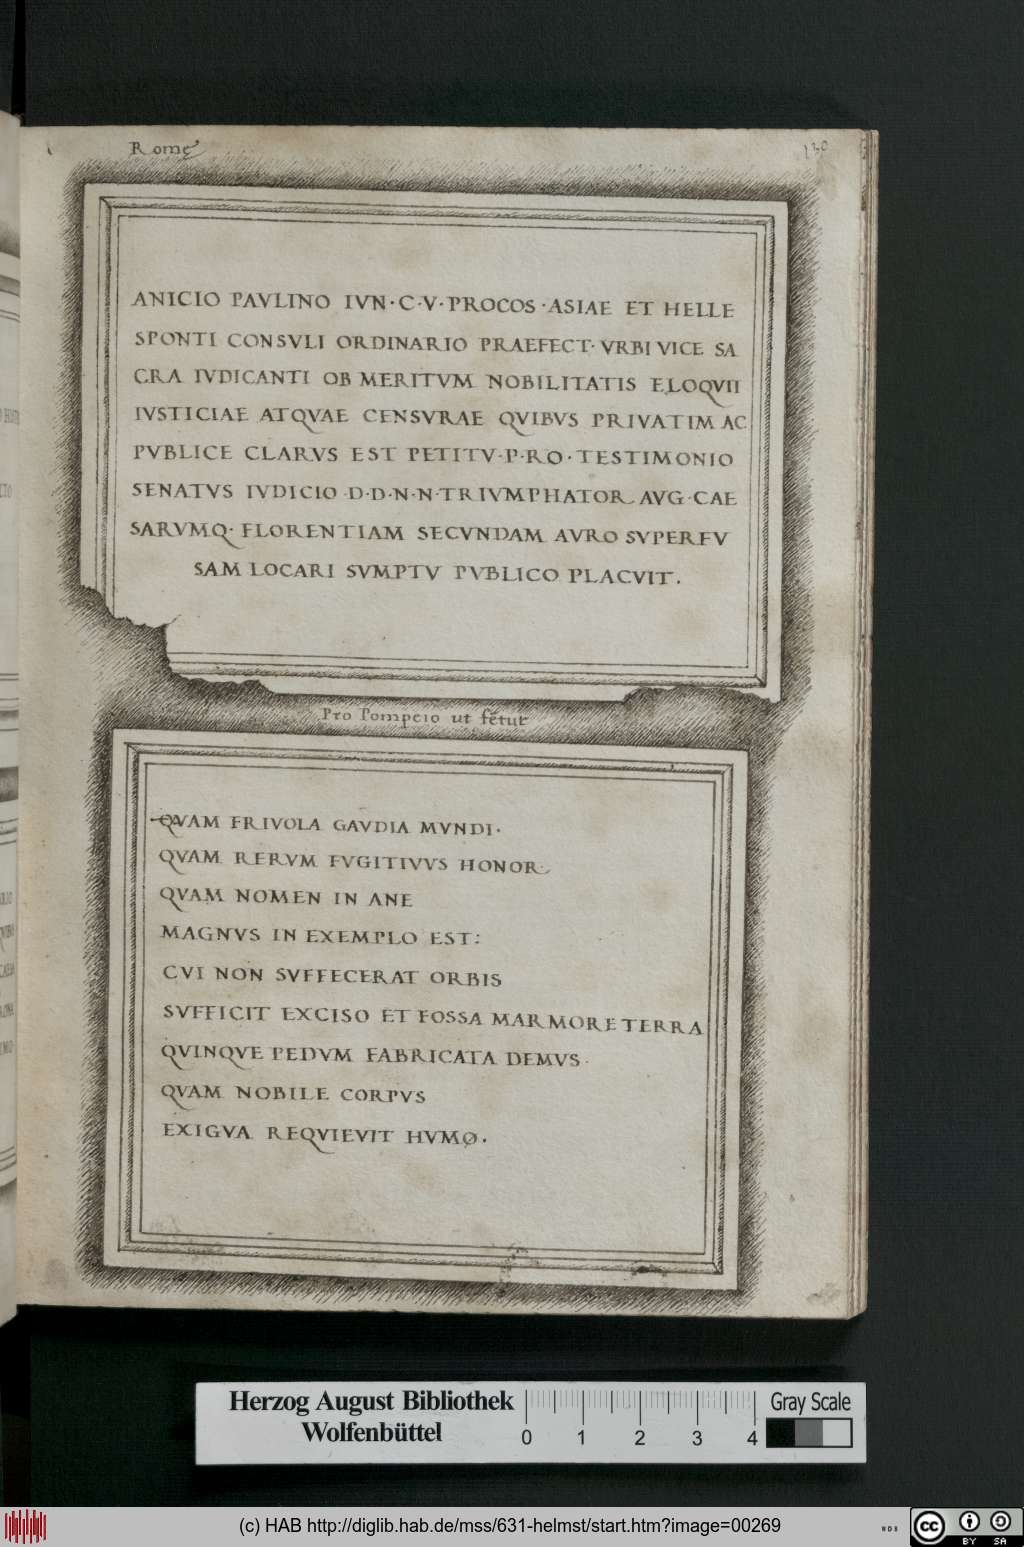 Romę
130
ANICIO PAVLINO IVN·C·V·PROCOS·ASIAE ET HELLE
SPONTI CONSVLI ORDINARIO PRAEFECT·VRBI VICE SA
CRA IVDICANTI OB MERITVM NOBILITATIS ELOQVII
IVSTICIAE ATQVAE CENSVRAE QVIBVS PRIVATIM AC
PVBLICE CLARVS EST PETITV·P·RO·TESTIMONIO
SENATVS IVDICIO·D·D·N·N·TRIVMPHATOR AVG·CAE
SARVMQ·FLORENTIAM SECVNDAM AVRO SVPERFV
SAM LOCARI SVMPTV PVBLICO PLACVIT.
Pro Pompeio ut fertur
QVAM FRIVOLA GAVDIA MVNDI·
QVAM RERVM FVGITIVVS HONOR·
QVAM NOMEN IN ANE
MAGNVS IN EXEMPLO EST:
CVI NON SVFFECERAT ORBIS
SVFFICIT EXCISO ET FOSSA MARMORE TERRA
QVINQVE PEDVM FABRICATA DEMVS·
QVAM NOBILE CORPVS
EXIGVA REQVIEVIT HVMO.
Herzog August Bibliothek
Wolfenbüttel
0 1 2 3 4
Gray Scale
(c) HAB http://diglib.hab.de/mss/631-helmst/start.htm?image=00269
WDB
cc BY SA